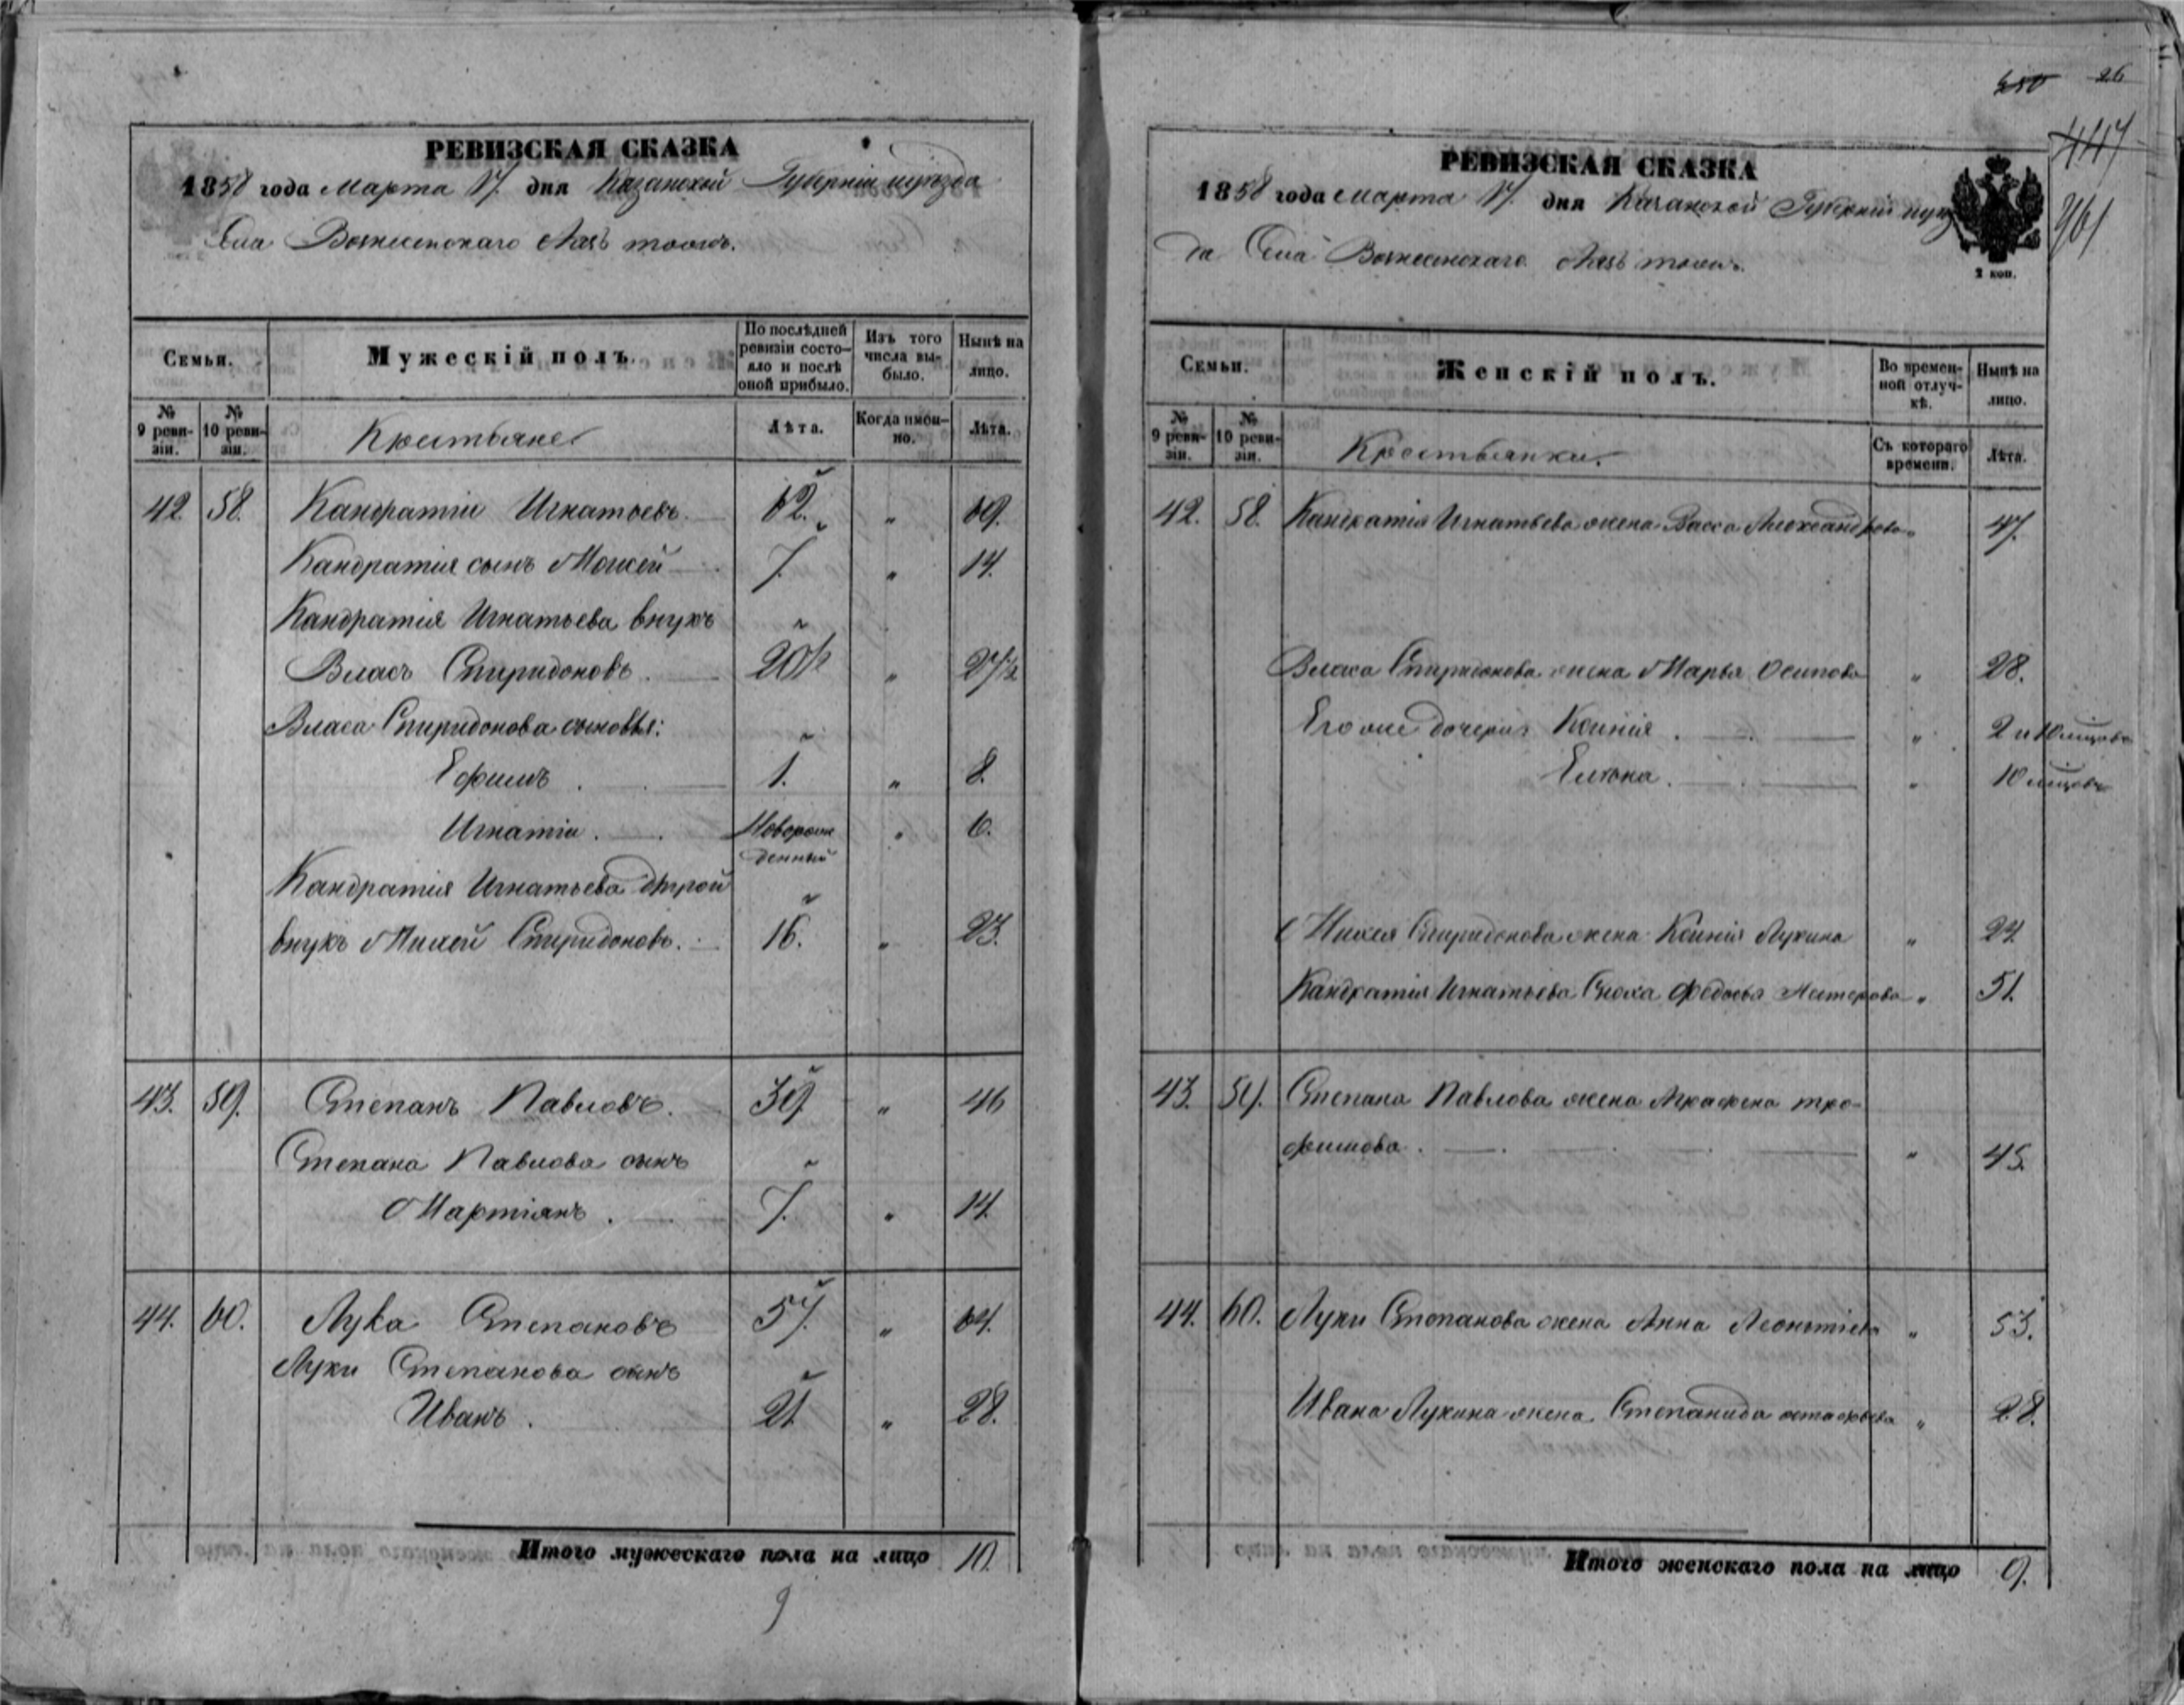 РЕВИЗСКАЯ СКАЗКА
1858 года Марта 17. дня Казанской Губерніи и уѣзда
Села Вознесенскаго тожъ.
Семьи.
Мужескій полъ.
По послѣдней ревизіи состояло и послѣ оной прибыло.
Изъ того числа выбыло.
Нынѣ на лицо.
№ 9 ревизіи.
№ 10 ревизіи.
Крестьяне
Лѣта.
Когда именно.
Лѣта.
42. 58. Кандратіи Игнатьевъ. 62. " 69.
Кандратія сынъ Моисей 7. " 14.
Кандратія Игнатьева внукъ
Власъ Спиридоновъ. 20½ " 27½
Власа Спиридонова сыновья:
Ефимъ. 1. " 8.
Игнатіи. Новорож " 6.
денный
Кандратія Игнатьева другой
внукъ Михей Спиридоновъ. 16. " 23.
43. 59. Степанъ Павловъ. 39. " 46
Степана Павлова сынъ
Мартіянъ. 7. " 14.
44. 60. Лука Степановъ 57. " 64.
Луки Степанова сынъ
Иванъ. 21 " 28.
Итого мужескаго пола на лицо 10.
9
250 26
447
961
РЕВИЗСКАЯ СКАЗКА
1858 года марта 17. дня Казанской Губерніи и уѣз
да Села Вознесенскаго тожъ.
2 коп.
Семьи.
Женскій полъ.
Во временной отлучкѣ.
Нынѣ на лицо.
№ 9 ревизіи.
№ 10 ревизіи.
Крестьянки.
Съ котораго времени.
Лѣта.
42. 58. Кандратія Игнатьева жена Васса Александрова " 47.
Власа Спиридонова жена Марья Осипова " 28.
Его же дочери: Ксинія. " 2 и 10 мѣцовъ
Елѣна. " 10 мѣцовъ
Михея Спиридонова жена Ксинія Лукина " 24.
Кандратія Игнатьева Сноха Федосья Нестерова " 51.
43. 59. Степана Павлова жена Аграфена тро-
фимова. " 45.
44. 60. Луки Степанова жена Анна Леонтіева " 53.
Ивана Лукина жена Степанида остафьева " 28.
Итого женскаго пола на лицо 9.